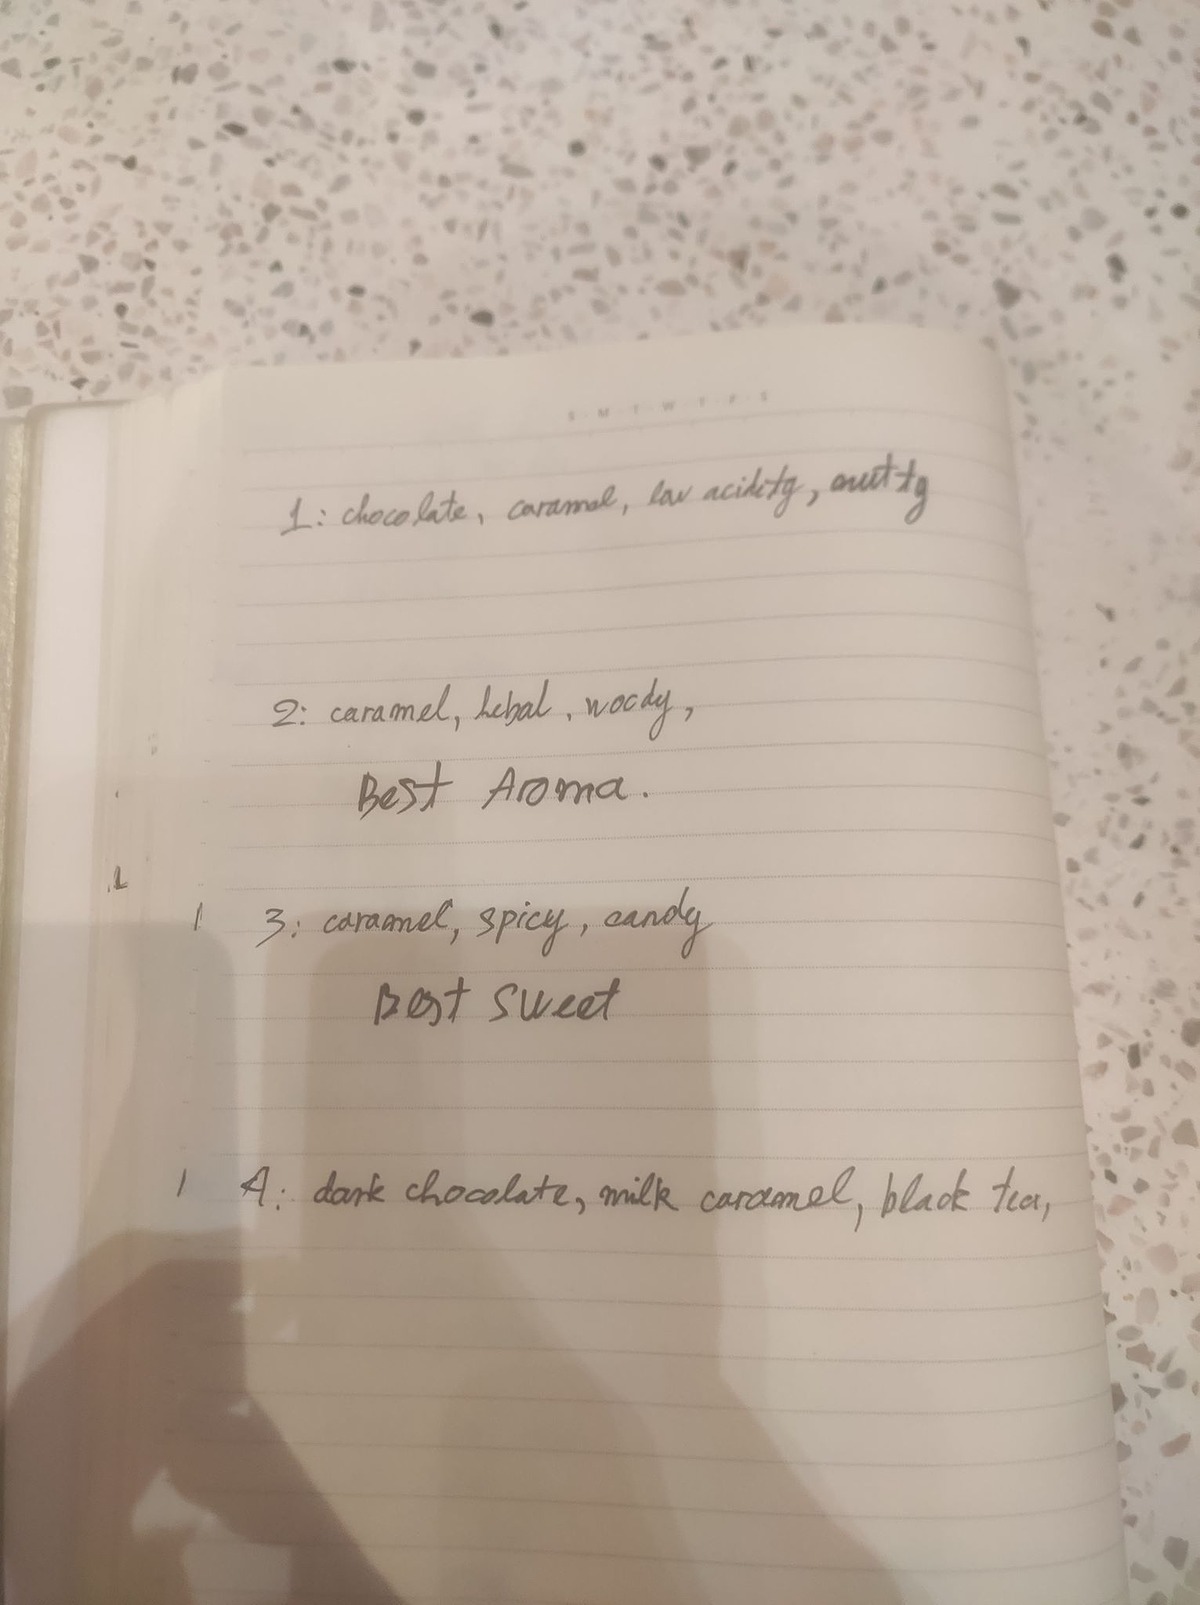 S M T W T F S
1: chocolate, caramel, low acidity, nutty
2: caramel, hebal, woody,
Best Aroma.
1
1 3: caramel, spicy, candy
Best Sweet
1 4: dark chocolate, milk caramel, black tea,